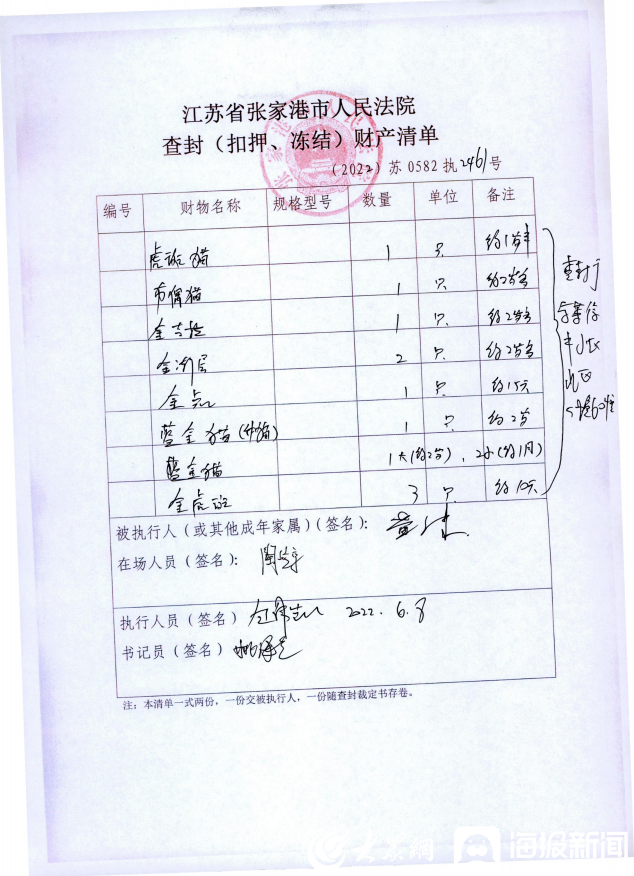 江苏省张家港市人民法院
查封（扣押、冻结）财产清单
（2022）苏 0582 执2461号
编号 财物名称 规格型号 数量 单位 备注
虎斑猫 1 只 约1岁半
布偶猫 1 只 约2岁多
金吉拉 1 只 约2岁多
金渐层 2 只 约2岁多
金点 1 只 约15天
蓝金猫 1 只 约2岁
蓝金猫 1大(约2岁)，2小(约1月)
金虎斑 3 只 约10天
查封于
小区
北区
被执行人（或其他成年家属）（签名）：
在场人员（签名）：
执行人员（签名） 2022.6.8
书记员（签名）
注：本清单一式两份，一份交被执行人，一份随查封裁定书存卷。
大众网 海报新闻